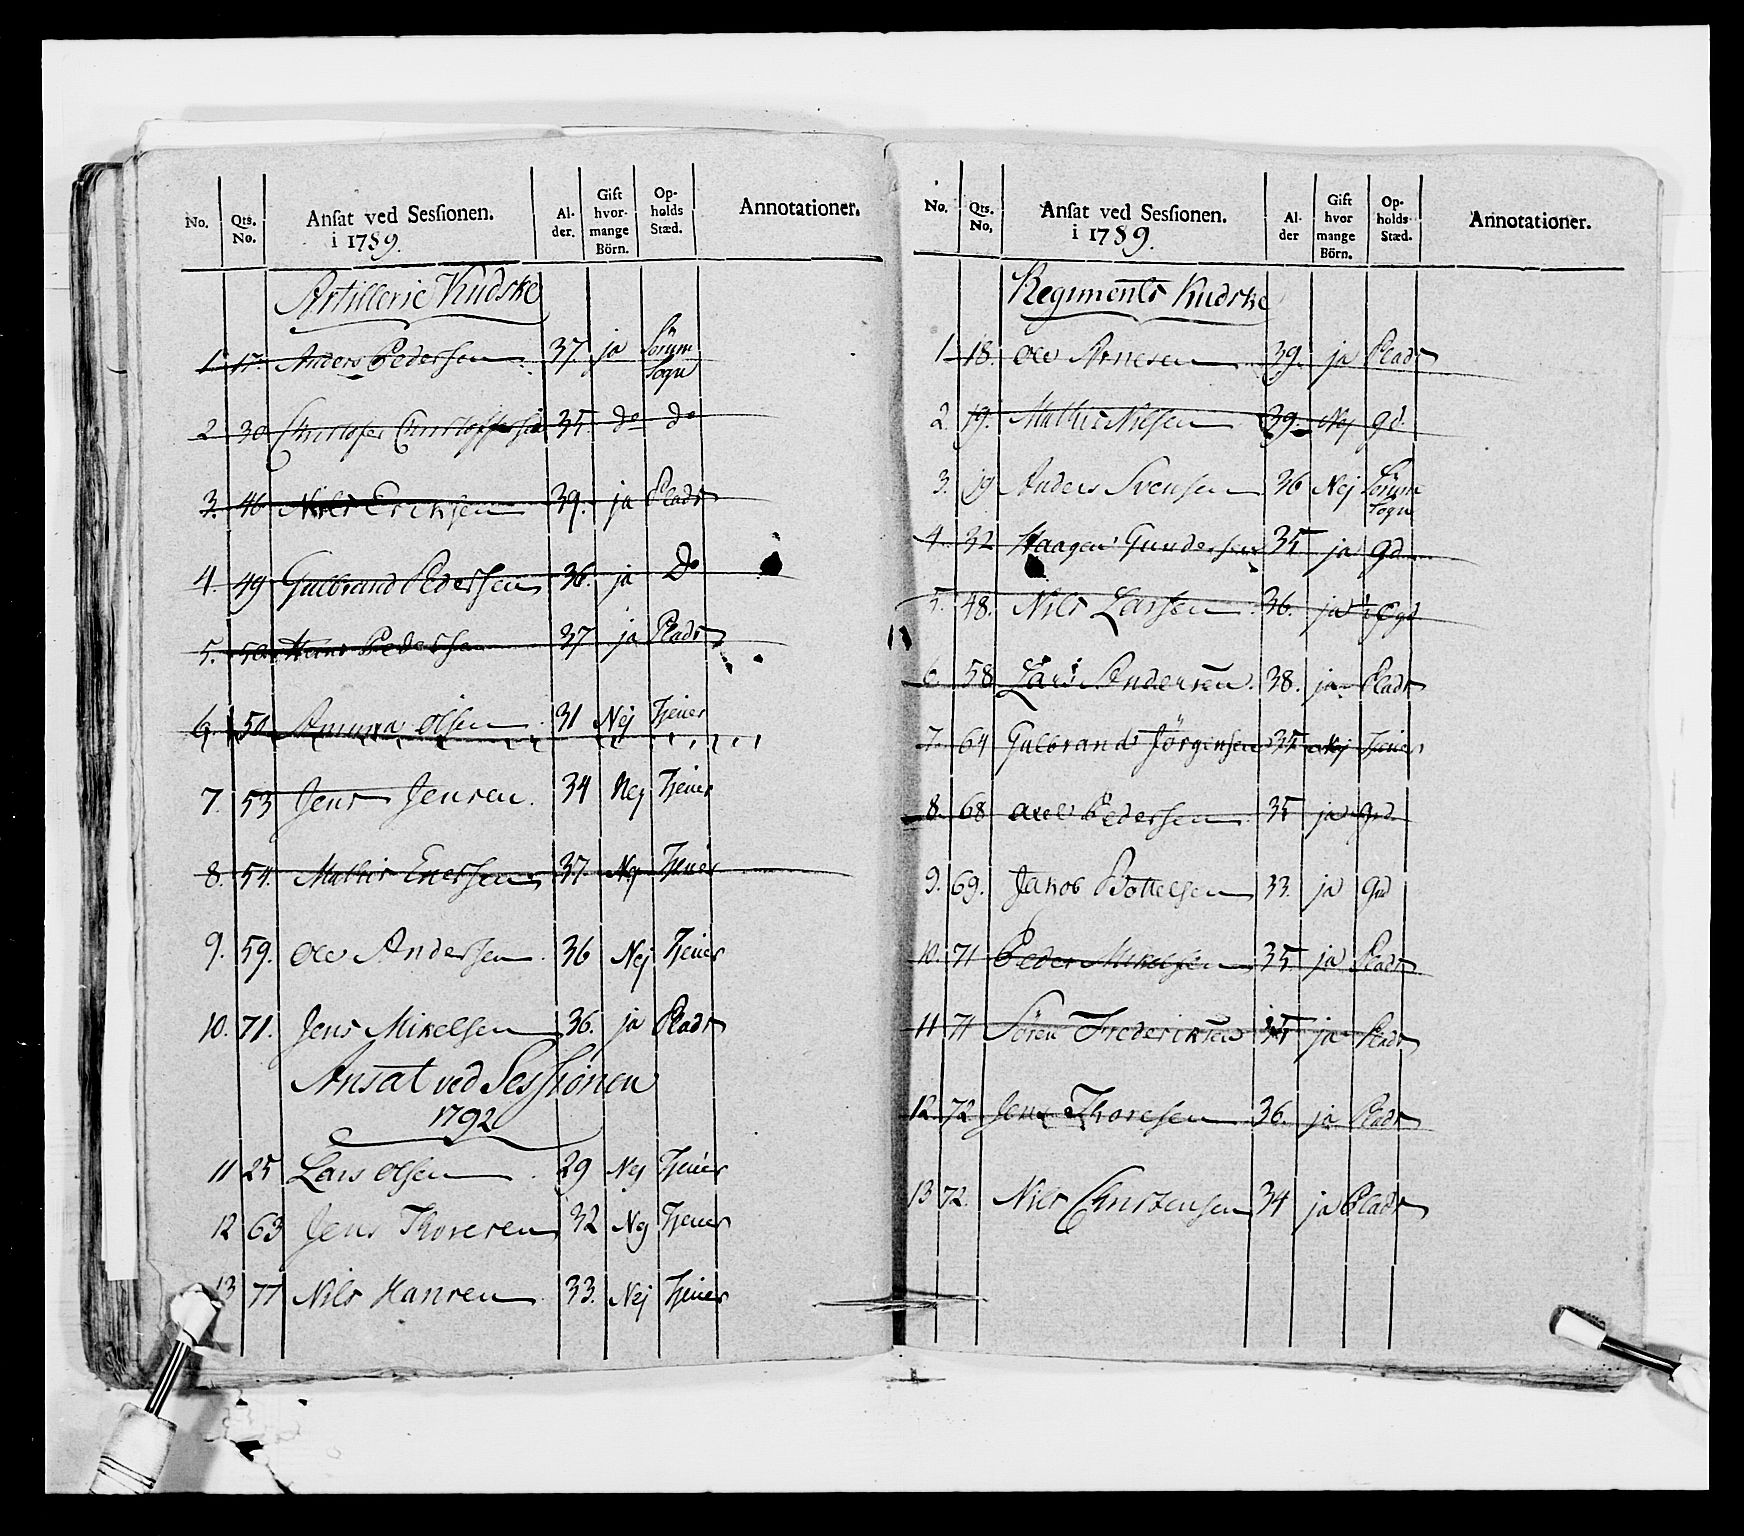 No. Qts. No. Ansat ved Sessionen. i 1789. Alder. Gift hvormange Börn. Opholds Stæd. Annotationer.
Artillerie Kudske
1. 17. Anders Pedersen 37 ja Sörum Sogn
2 30 Christofer Christoffersen 35 do do
3. 46 Nils Eriksen 39. ja Plads
4. 49 Gulbrand Pedersen 36. ja Do
5. 50 Hans Pedersen 37 ja Plads
6. 50 Olsen 31 Nej Tjener
7. 53 Jens Jensen. 34 Nej Tjener
8. 54. Mathis Enersen 37. Nej Tjener
9. 59. Ole Andersen 36 Nej Tjener
10. 71. Jens Mikelsen 36. ja Plads
Ansat ved Sessionen
1792
11 25 Lars Olsen 29 Nej Tjener
12 63 Jens Thoresen 32 Nej Tjener
13 71 Nils Hansen 33. Nej Tjener
No. Qts. No, Ansat ved Sessionen. i 1789. Alder Gift hvor mange Börn. Opholds Stæd. Annotationer.
Regiments Kudske
1. 18. Ole Arnesen 39. ja Plads
2. 19. Mathis Nilsen 39. Nej gd.
3. 19 Anders Svensen 36 Nej Sörum Sogn
4. 32 Haagen Gundersen 35 ja gd
5. 48. Nils Larsen 36. ja gd
6. 58 Lars Andersen. 38. ja Plads
7. 64 Gulbrand Jörgensen 35 Nej Tjener
8. 68 Axel Pedersen 35 ja gd.
9. 69. Jakob Bottelsen 33. ja Grd
10. 71 Peder Mikelsen 35 ja Plads
11 71 Sören Frederiksen 35 ja Plads
12. 72 Jens Thoresen 36. ja Plads
13 72. Nils Christensen 34 ja Plads